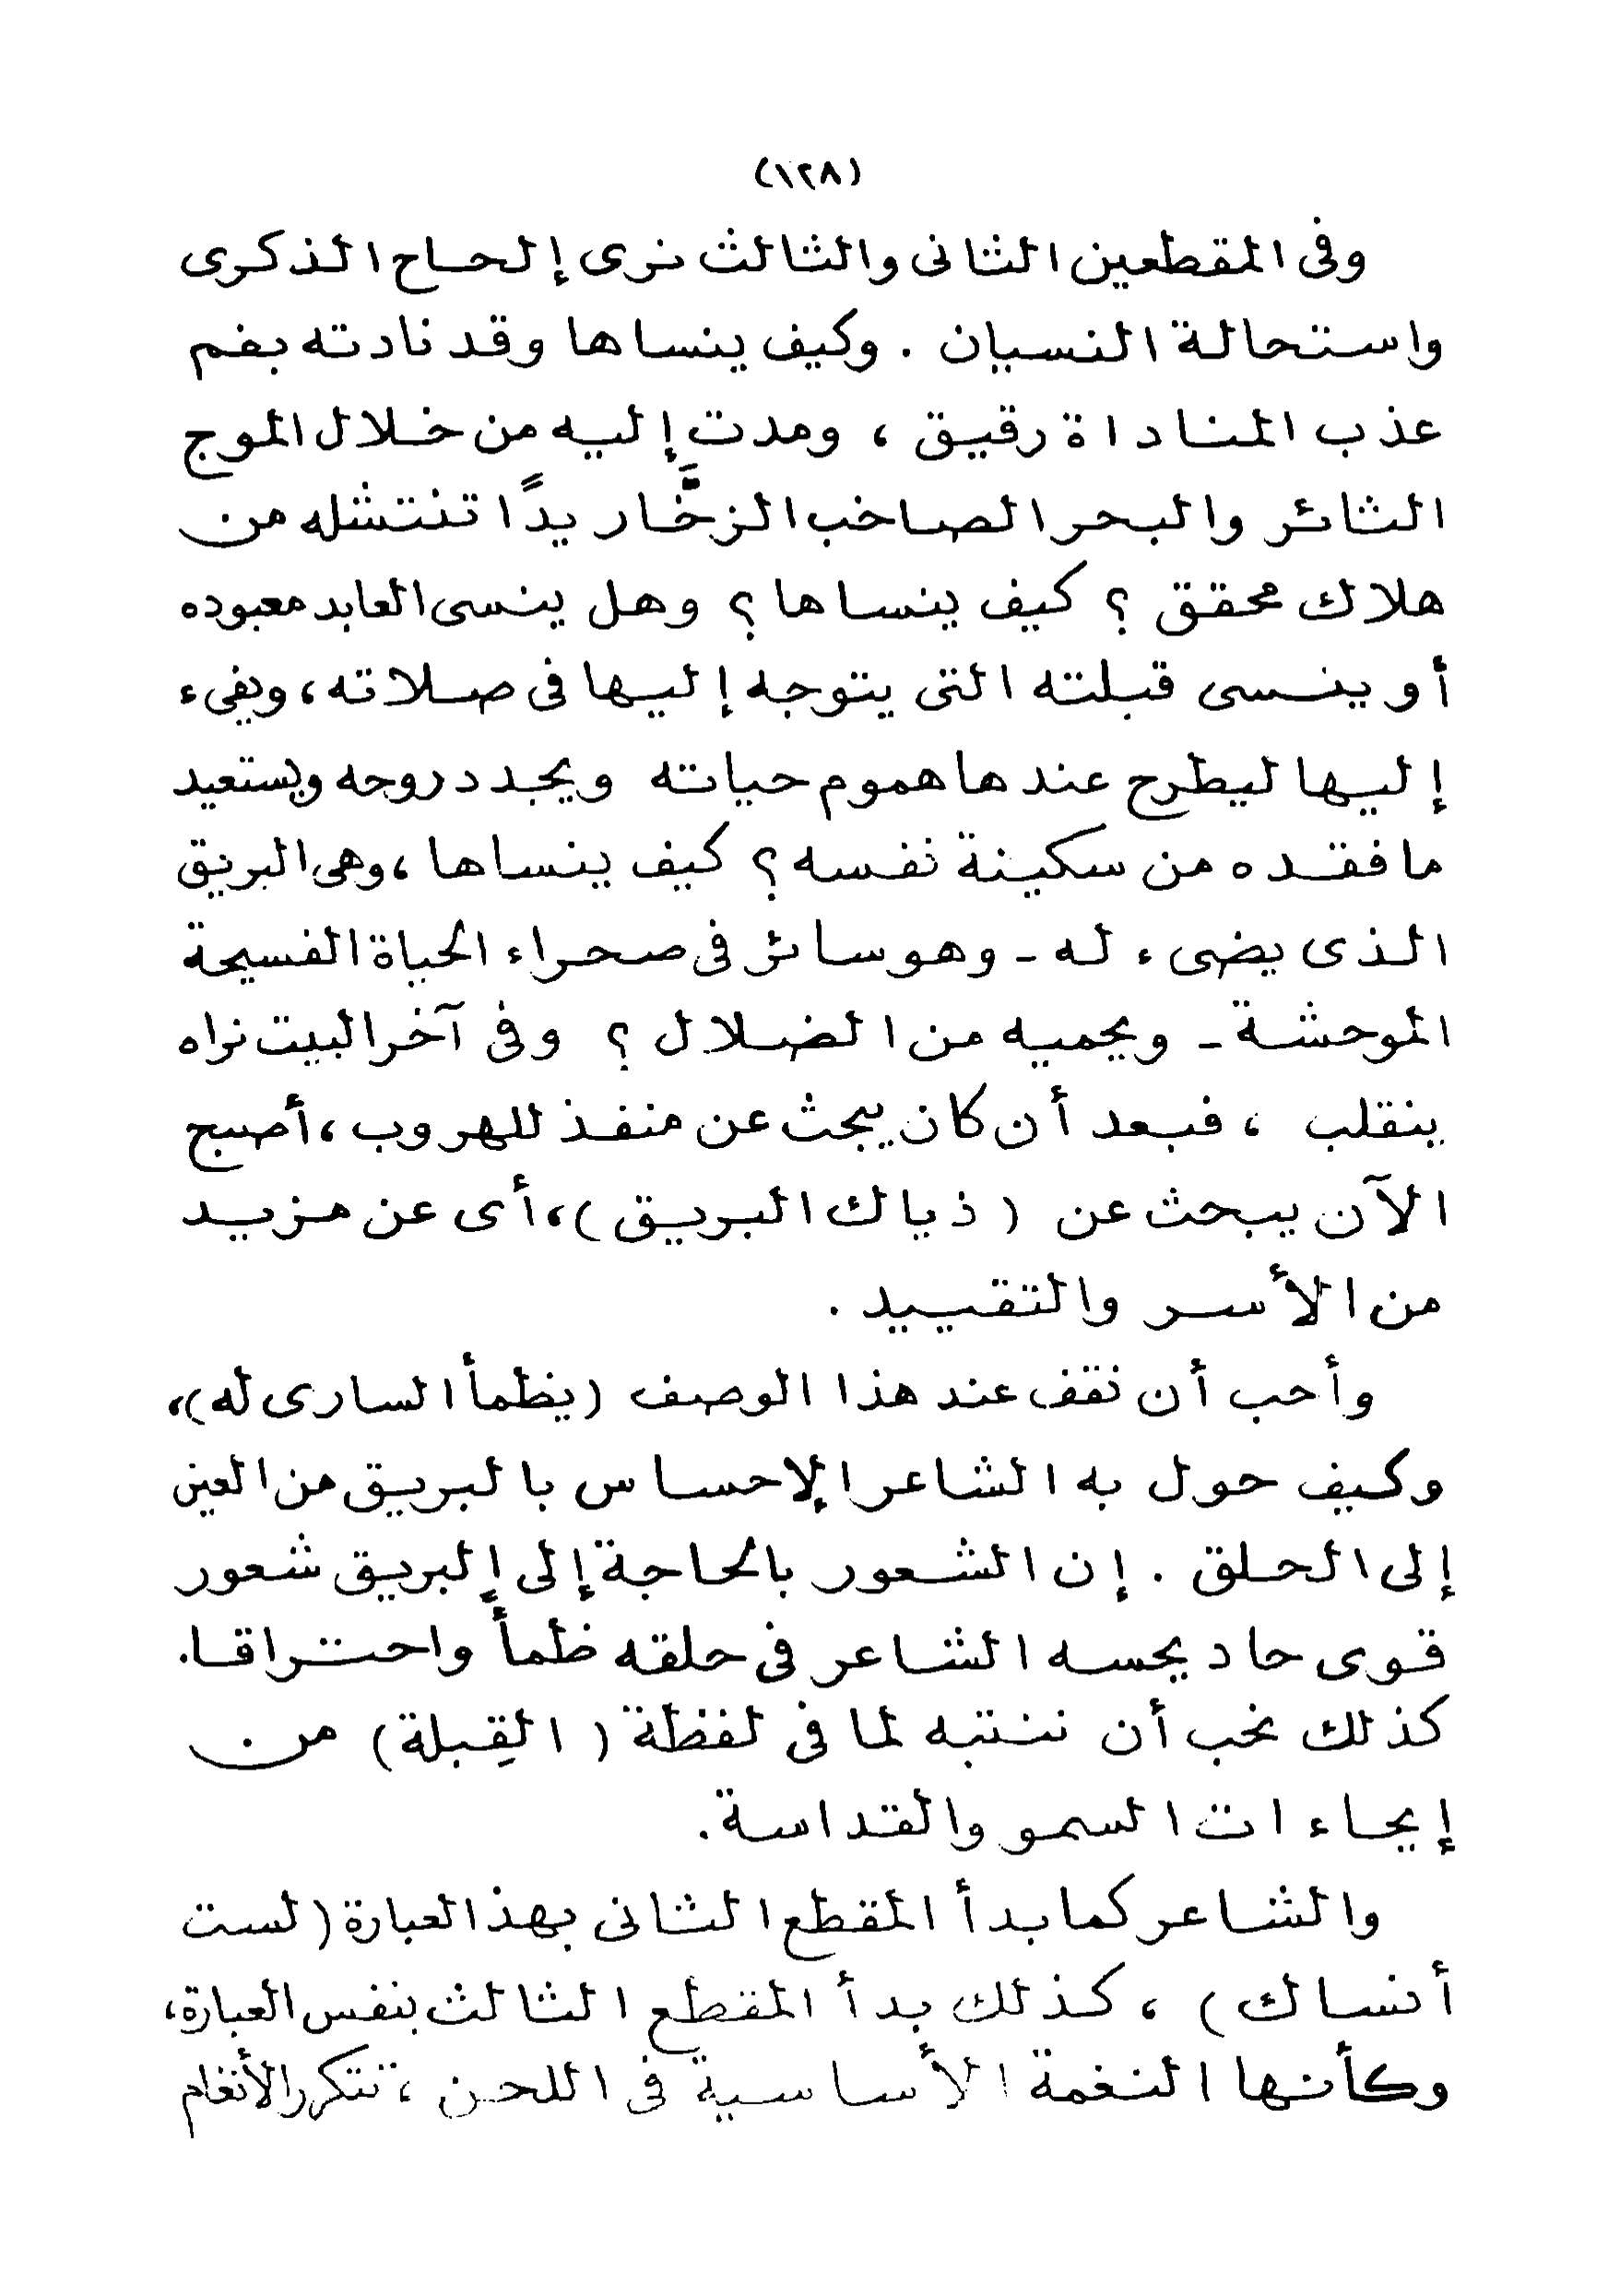 (١٢٨)
وفى المقطعين الثانى والثالث نرى إلحاح الذكرى
واستحالة النسيان . وكيف ينساها وقد نادته بفم
عذب المناداة رقيق ، ومدت إليه من خلال الموج
الثائر والبحر الصاخب الزخَّار يدًا تنتشله من
هلاك محقق ؟ كيف ينساها ؟ وهل ينسى العابد معبوده
أو ينسى قبلته التى يتوجه إليها فى صلاته ، ويفىء
إليها ليطرح عندها هموم حياته ويجدد روحه ويستعيد
ما فقده من سكينة نفسه ؟ كيف ينساها ، وهى البريق
الذى يضىء له - وهو سائر فى صحراء الحياة الفسيحة
الموحشة - ويحميه من الضلال ؟ وفى آخر البيت نراه
ينقلب ، فبعد أن كان يبحث عن منفذ للهروب ، أصبح
الآن يبحث عن ( ذياك البريق ) ، أى عن مزيد
من الأسر والتقييد .
وأحب أن نقف عند هذا الوصف (يظمأ السارى له) ،
وكيف حول به الشاعر الإحساس بالبريق من العين
إلى الحلق . إن الشعور بالحاجة إلى البريق شعور
قوى حاد يحسه الشاعر فى حلقه ظمأً واحتراقا .
كذلك نحب أن ننتبه لما فى لفظة ( القِبلة ) من
إيحاءات السمو والقداسة .
والشاعر كما بدأ المقطع الثانى بهذا العبارة ( لست
أنساك ) ، كذلك بدأ المقطع الثالث بنفس العبارة ،
وكأنها النغمة الأساسية فى اللحن ، تتكرر الأنغام